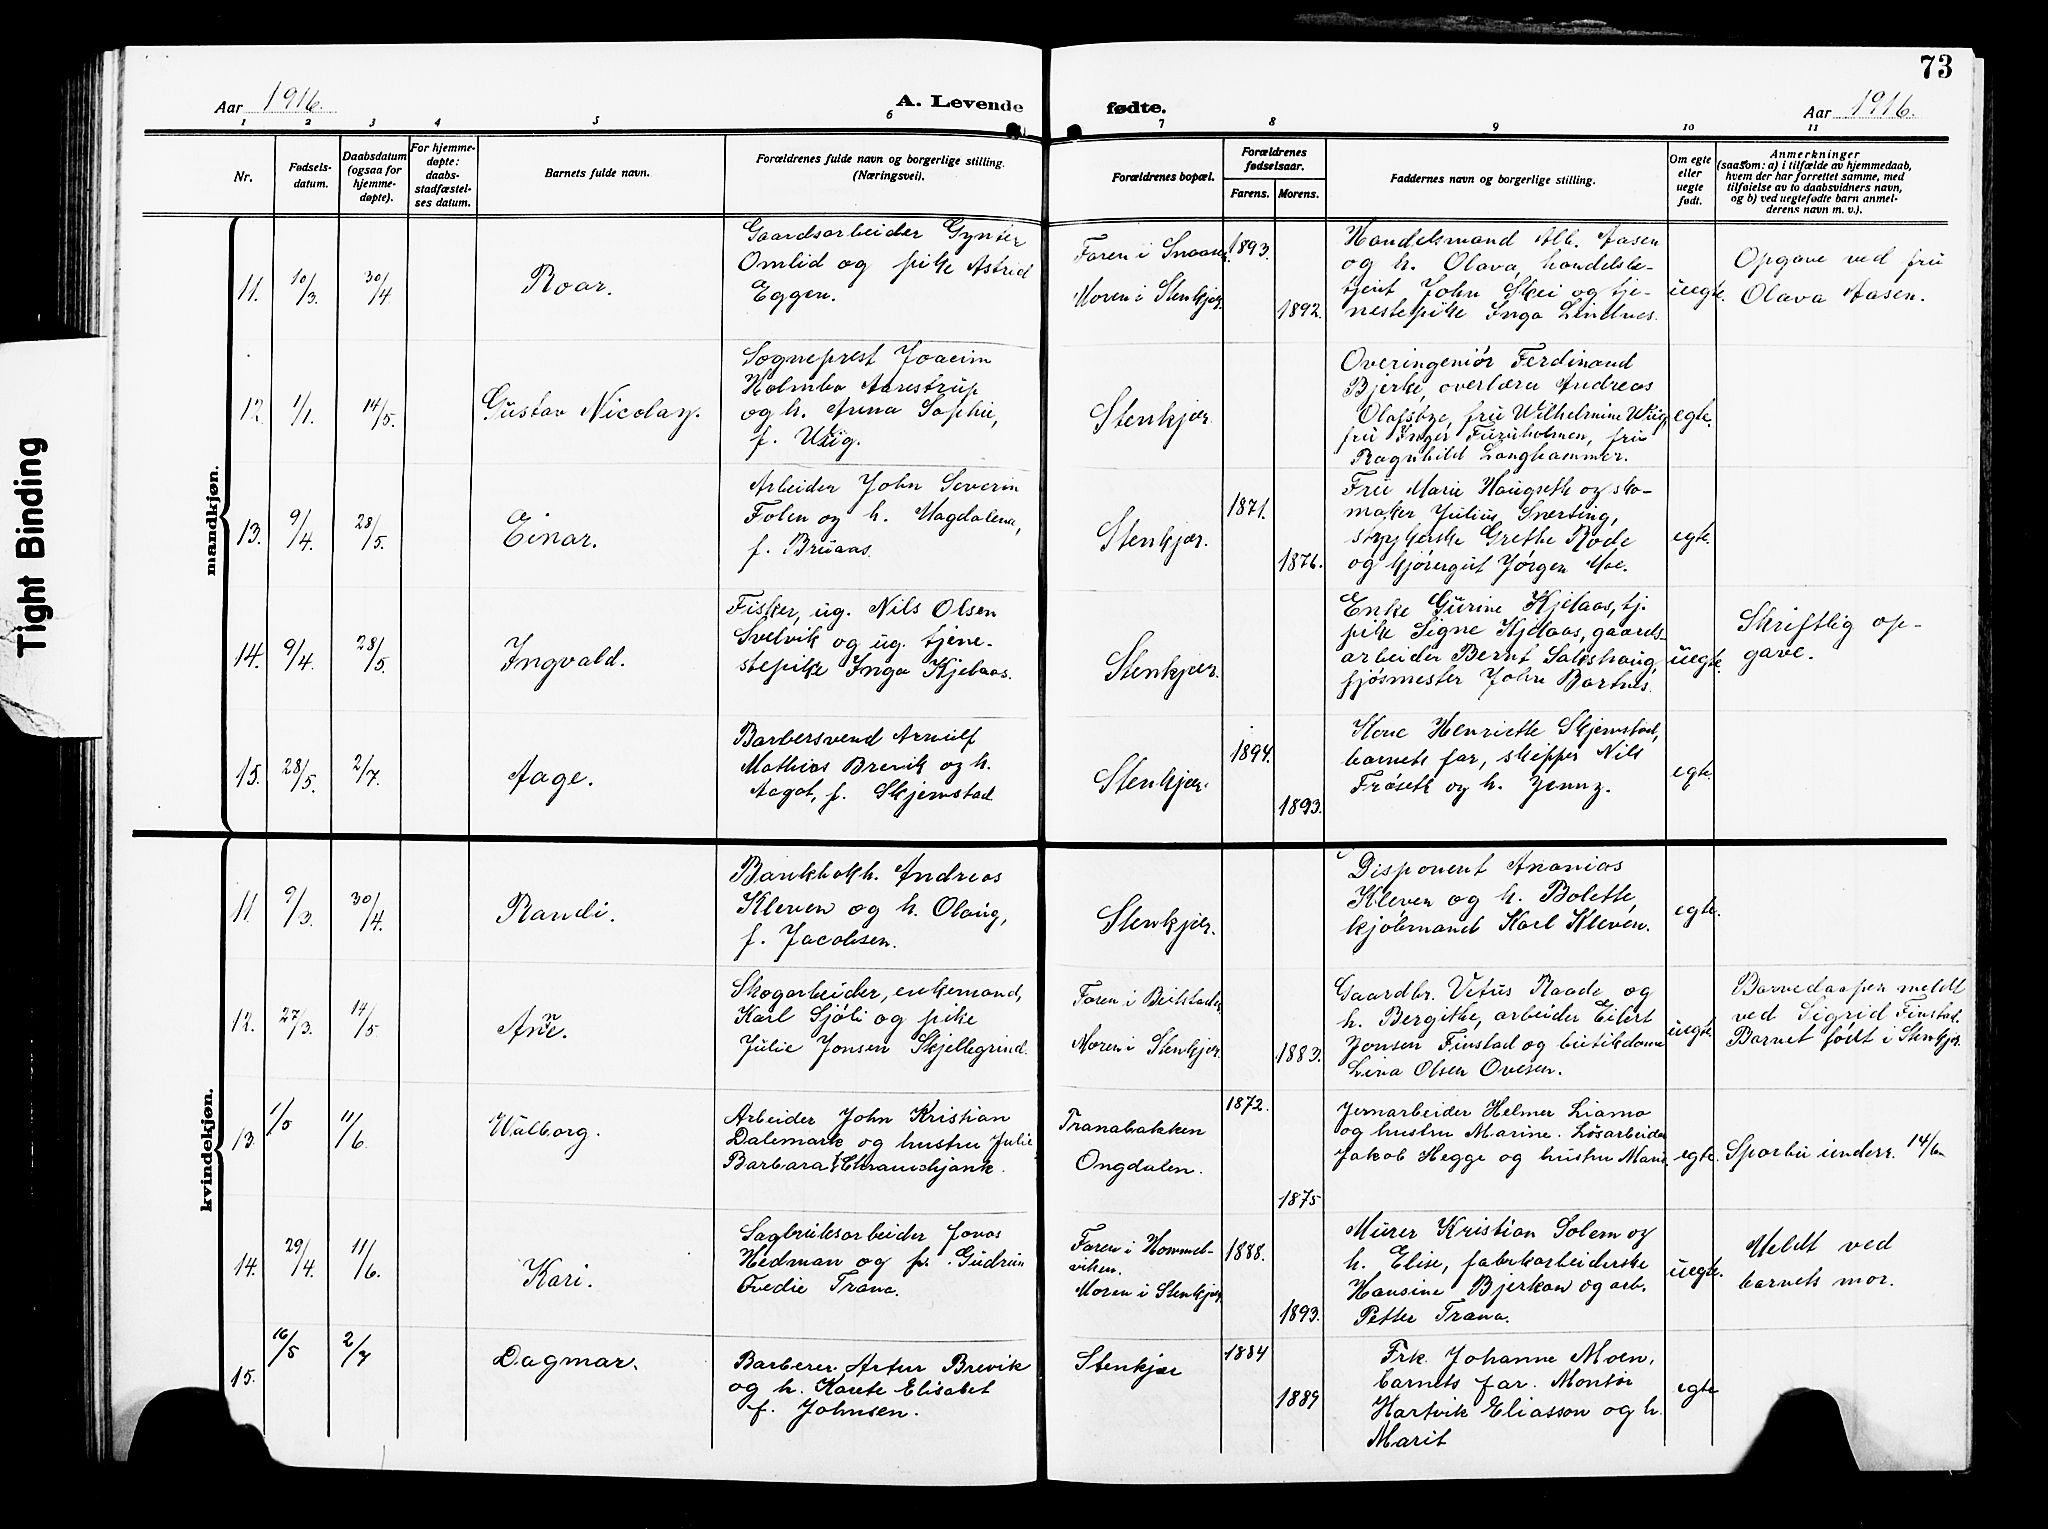 73
Aar 1916.
A. Levende fødte.
Aar 1916.
1 2 3 4 5 6 7 8 9 10 11
Nr.
Fødsels-
datum.
Daabsdatum
(ogsaa for
hjemme-
døpte).
For hjemme-
døpte:
daabs-
stadfæstel-
ses datum.
Barnets fulde navn.
Forældrenes fulde navn og borgerlige stilling.
(Næringsvei).
Forældrenes bopæl.
Forældrenes
fødselsaar.
Farens. Morens.
Faddernes navn og borgerlige stilling.
Om egte
eller
uegte
født.
Anmerkninger
(saasom: a) i tilfælde av hjemmedaab,
hvem der har forrettet samme, med
tilføielse av to daabsvidners navn,
og b) ved uegtefødte barn anmel-
derens navn m. v.).
mandkjøn.
11.
10/3.
30/4
Roar.
Gaardsarbeider Gynter
Omlid og pike Astrid
Eggen.
Faren i Snaasen
Moren i Stenkjær.
1893.
1892.
Handelsmand Alb. Aasen
og h. Olava, handelsbe-
tjent John Skei og tje-
nestepike Inga Lindnes.
uegte.
Opgave ved fru
Olava Aasen.
12.
1/1.
14/5.
Gustav Nicolay.
Sogneprest Joacim
Holmbo Aarestrup
og h. Anna Sophie,
f. Wiig.
Stenkjær.
Overingeniør Ferdinand
Bjerke, overlærer Andreas
Olafsbye, fru Wilhelmine Wiig,
fru Inger Furuholmen, fru
Ragnhild Langhammer.
egte.
13.
9/4.
28/5.
Einar.
Arbeider John Severin
Folen og h. Magdalena,
f. Bruaas.
Stenkjær.
1871.
1876.
Fru Marie Haugseth og sko-
maker Julius Snerting,
strykerske Grethe Rode
og kjøregut Jørgen Moe.
egte.
14.
9/4.
28/5.
Ingvald.
Fisker, ug. Nils Olsen
Svelvik og ug. tjene-
stepike Inga Kjelaas.
Stenkjær.
Enke Gurine Kjelaas, tj.
pike Signe Kjelaas, gaards-
arbeider Bernt Sakshaug,
fjøsmester John Bartnes.
uegte.
Skriftlig op-
gave.
15.
28/5.
2/7.
Aage.
Barbersvend Arnulf
Mathias Brevik og h.
Aagot, f. Skjemstad
Stenkjær.
1894.
1893.
Kone Henriette Skjemstad,
barnets far, skipper Nils
Frøseth og h. Jenny.
egte.
kvindekjøn.
11.
9/3.
30/4.
Randi.
Bankbokh. Andreas
Kleven og h. Olaug,
f. Jacobsen.
Stenkjær.
Disponent Ananias
Kleven og h. Bolette,
kjøbmand Karl Kleven.
egte.
12.
27/3.
14/5
Anne.
Skogarbeider, enkemand,
Karl Sjøli og pike
Julie Jonsen Skjellegrind.
Faren i Beitstaden
Moren i Stenkjær.
1883.
Gaardbr. Vetus Raade og
h. Bergithe, arbeider Eilert
Jonsen Finstad og butikdame
Lina Olsen Ovesen.
uegte.
Barnedaapen meldt
ved Sigrid Finstad.
Barnet født i Stenkjær.
13.
1/5
11/6.
Walborg.
Arbeider John Kristian
Dalemark og hustru Julie
Barbara
Tranabakken
Ongdalen.
1872.
1875
Jernarbeider Helmer Liamo
og hustru Marine. Løsarbeider
Jakob Hegge og hustru Marie.
egte.
Sparbu underr. 14/6
14.
29/4.
11/6.
Kari.
Sagbruksarbeider Jonas
Hedman og p. Gudrun
Ovedie Trana.
Faren i Hommel-
viken.
Moren i Stenkjær.
1888.
1893.
Murer Kristian Solem og
h. Elise, fabrikarbeiderske
Hansine Bjerkan og arb.
Petter Trana.
uegte.
Meldt ved
barnets mor.
15.
16/5
2/7
Dagmar.
Barberer Artur Brevik
og h. Karete Elisabet
f. Johnsen.
Stenkjær
1884
1889
Frk. Johanne Moen,
barnets far. Montør
Hartvik Eliasson og h.
Marit
egte
Tight Binding